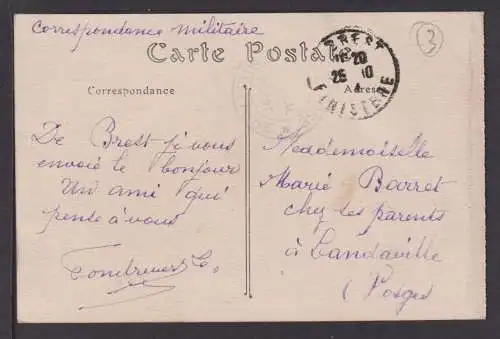 Correspondance militaire
3
Carte Postale
BREST
20
25 10
FINISTERE
Correspondance
Adresse
De Brest je vous
envoie le bonjour
Un ami qui
pense à vous
Mademoiselle
Marie Barret
chez les parents
à Landaville
(Vosges